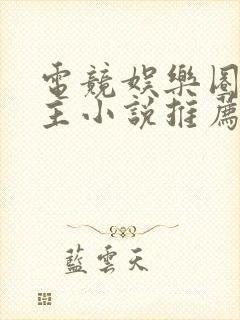 電競娛樂圈
主小說推薦
藍雲天